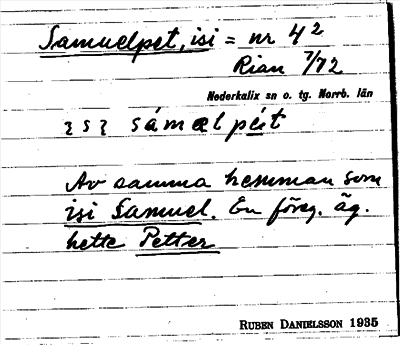 Samuelpet, isi = nr 4²
Rian 7/72
Nederkalix sn o. tg. Norrb. län
sámælpét
Av samma hemman som
isi Samuel. En föreg. äg.
hette Petter
RUBEN DANIELSSON 1935